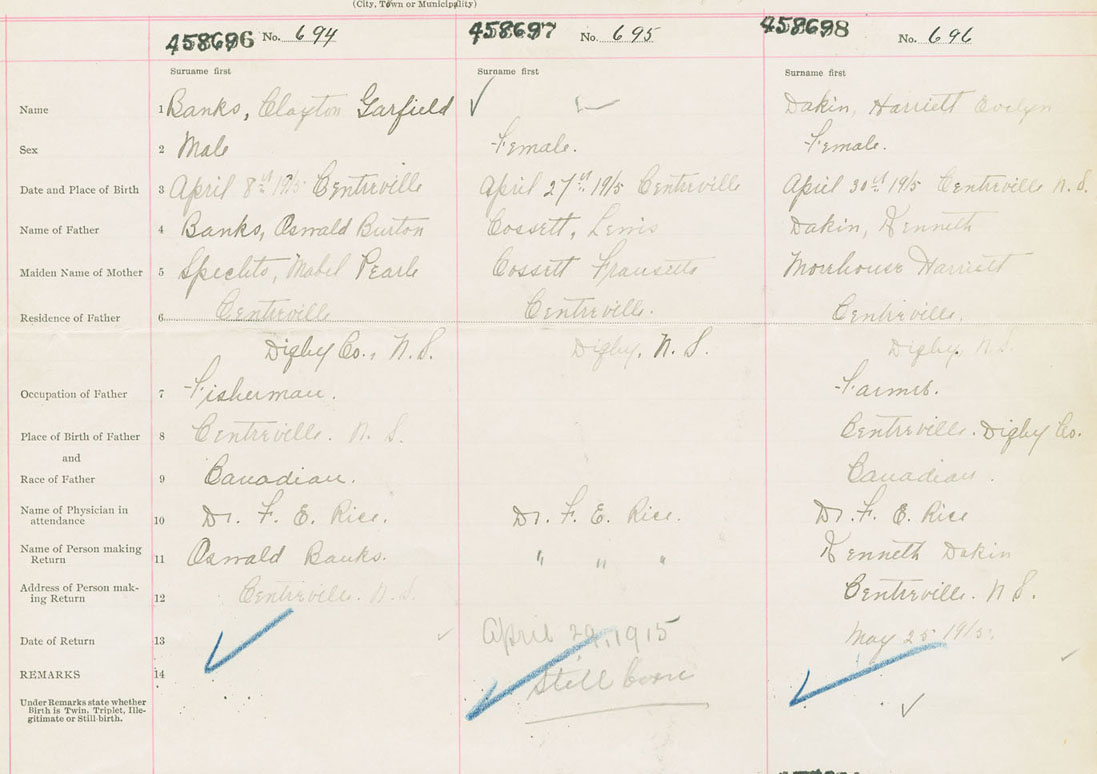 (City, Town or Municipality)
458696 No. 694 458697 No. 695 458698 No. 696
Surname first Surname first Surname first
Name 1 Banks, Clayton Garfield Dakin, Harriett Evelyn
Sex 2 Male Female. Female.
Date and Place of Birth 3 April 8th 1915 Centreville April 27th 1915 Centreville April 30th 1915 Centreville N. S.
Name of Father 4 Banks, Oswald Burton Cossett, Lewis Dakin, Kenneth
Maiden Name of Mother 5 Mabel Pearle Cossett Morehouse Harriett
Residence of Father 6 Centreville Centreville. Centreville,
Digby Co., N. S. Digby, N. S. Digby, N. S.
Occupation of Father 7 Fisherman. Farmer.
Place of Birth of Father 8 Centreville. N. S. Centreville. Digby Co.
and
Race of Father 9 Canadian. Canadian.
Name of Physician in
attendance 10 Dr. F. E. Rice. Dr. F. E. Rice. Dr. F. E. Rice
Name of Person making
Return 11 Oswald Banks. " " " Kenneth Dakin
Address of Person mak-
ing Return 12 Centreville. N. S. Centreville. N. S.
Date of Return 13 April 29, 1915 May 25 1915.
REMARKS 14 Still born
Under Remarks state whether
Birth is Twin, Triplet, Ille-
gitimate or Still-birth.